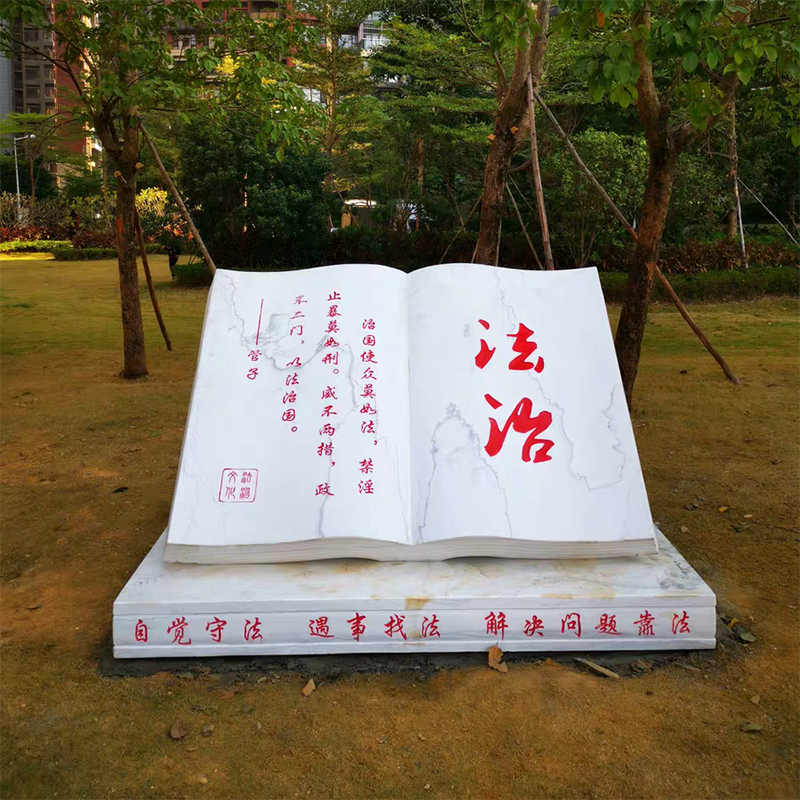 法治
治国使众莫如法，禁淫
止暴莫如刑。威不两措，政
不二门，以法治国。
——管子
法治文化
自觉守法 遇事找法 解决问题靠法